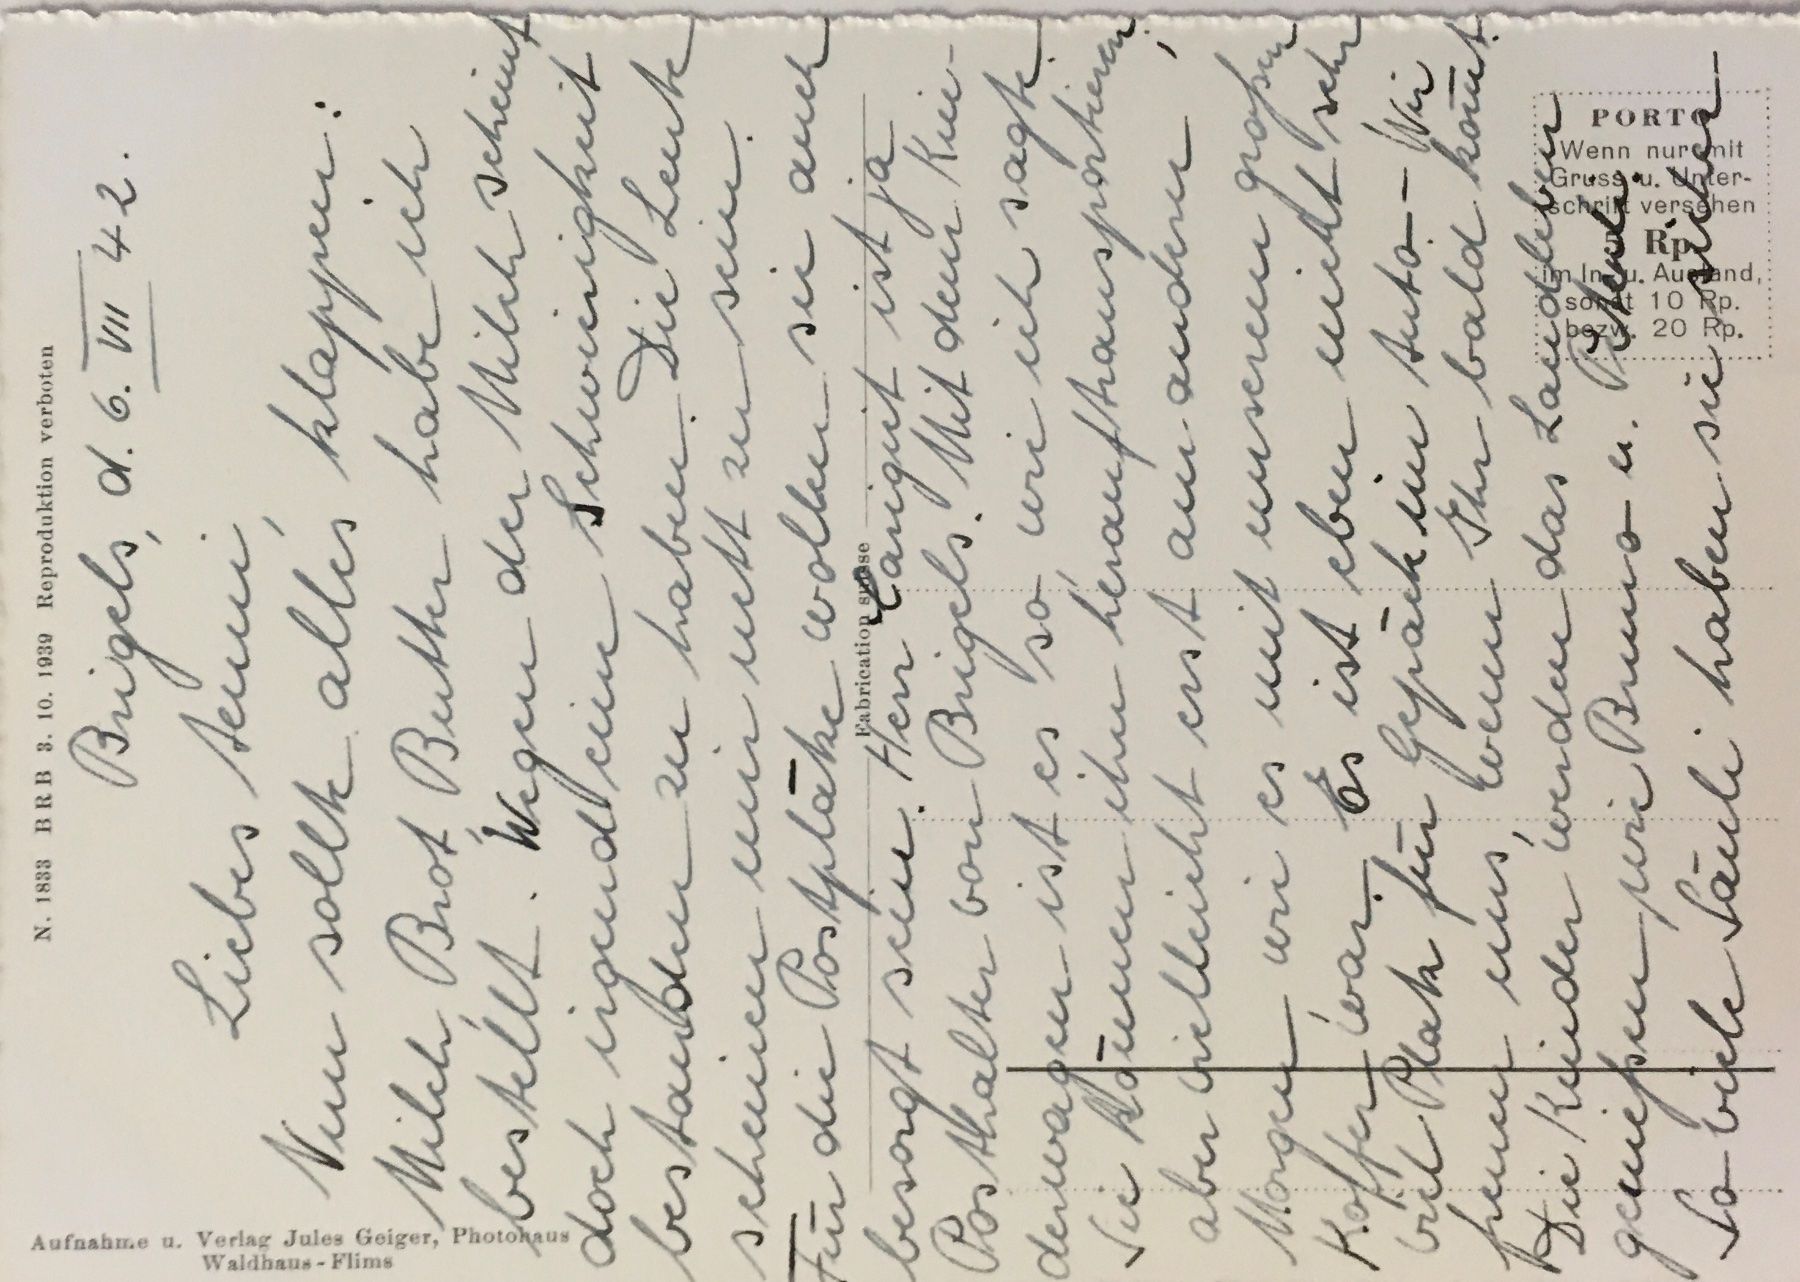 Brigels, d. 6. VII 42.
Liebes Aenni,
Nun sollte alles klappen:
Milch, Brot, Butter habe ich
bestellt. Wegen der Milch scheint
doch irgendeine Schwierigkeit
bestanden zu haben. Die Leute
scheinen mir nett zu sein.
Für die Postplätze wollen sie auch
besorgt sein. Herr Carigiet ist ja
Posthalter von Brigels. Mit dem Kin-
derwagen ist es so wie ich sagte.
Sie können ihn herauftransportieren,
aber vielleicht erst am andern
Morgen wie es mit unserem großen
Koffer war. Es ist eben nicht sehr
viel Platz für Gepäck im Auto — Wir
freuen uns, wenn Ihr bald kommt.
Die Kinder werden das Landleben
genießen wie Bruno u. Heidi.
So viele Säuli haben sie sicher
N. 1833 B R B 3. 10. 1939 Reproduktion verboten
Aufnahme u. Verlag Jules Geiger, Photohaus
Waldhaus-Flims
Fabrication suisse
PORTO
Wenn nur mit
Gruss u. Unter-
schrift versehen
Rp.
im In- u. Ausland,
sonst 10 Rp.
bezw. 20 Rp.